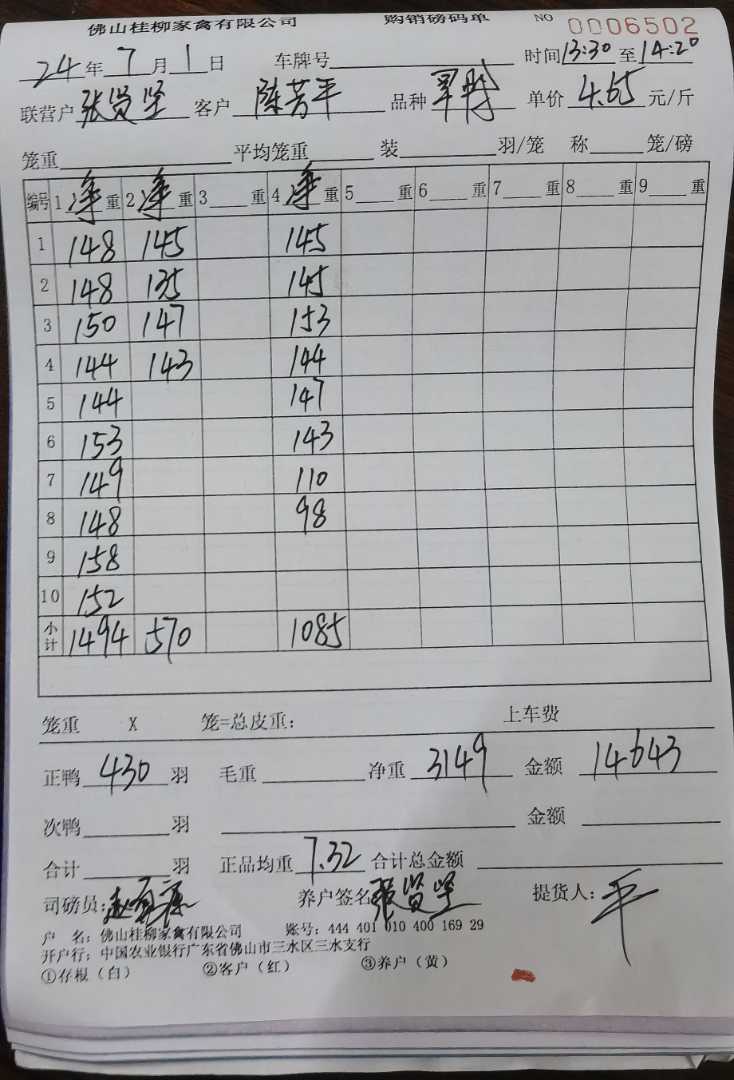 佛山桂柳家禽有限公司 购销磅码单 NO 0006502
24年7月1日 车牌号 时间13:30至14:20
联营户 张贤坚 客户 陈芳平 品种 单价 4.65 元/斤
笼重 平均笼重 装 羽/笼 称 笼/磅
编号 1 净 重 2 净 重 3 重 4 净 重 5 重 6 重 7 重 8 重 9 重
1 148 145 145
2 148 135 145
3 150 147 153
4 144 143 144
5 144 147
6 153 143
7 149 110
8 148 98
9 158
10 152
小计 1494 570 1085
笼重 X 笼=总皮重: 上车费
正鸭 430 羽 毛重 净重 3149 金额 14643
次鸭 羽 金额
合计 羽 正品均重 7.32 合计总金额
司磅员: 养户签名 张贤坚 提货人: 平
户 名: 佛山桂柳家禽有限公司 账号: 444 401 010 400 169 29
开户行: 中国农业银行广东省佛山市三水区三水支行
①存根(白) ②客户(红) ③养户(黄)